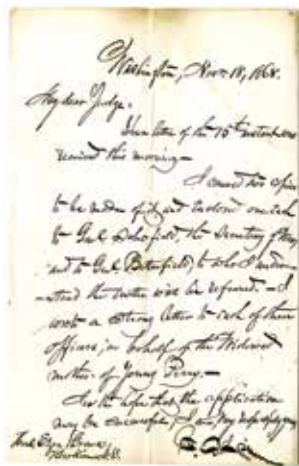 Washington, Nov. 18, 1868.
My dear Judge.
Your letter of the 15th instant was
received this morning—
I caused two copies
to be made of it, and enclosed one each
to Genl Schofield, the Secretary of War,
and to Genl Butterfield, to who I under-
stand the matter was be referred.— I
wrote a strong letter to each of these
officers, in behalf of the Widowed
mother of Young Perry.—
In the hope that the application
may be successful, I am, very respectfully